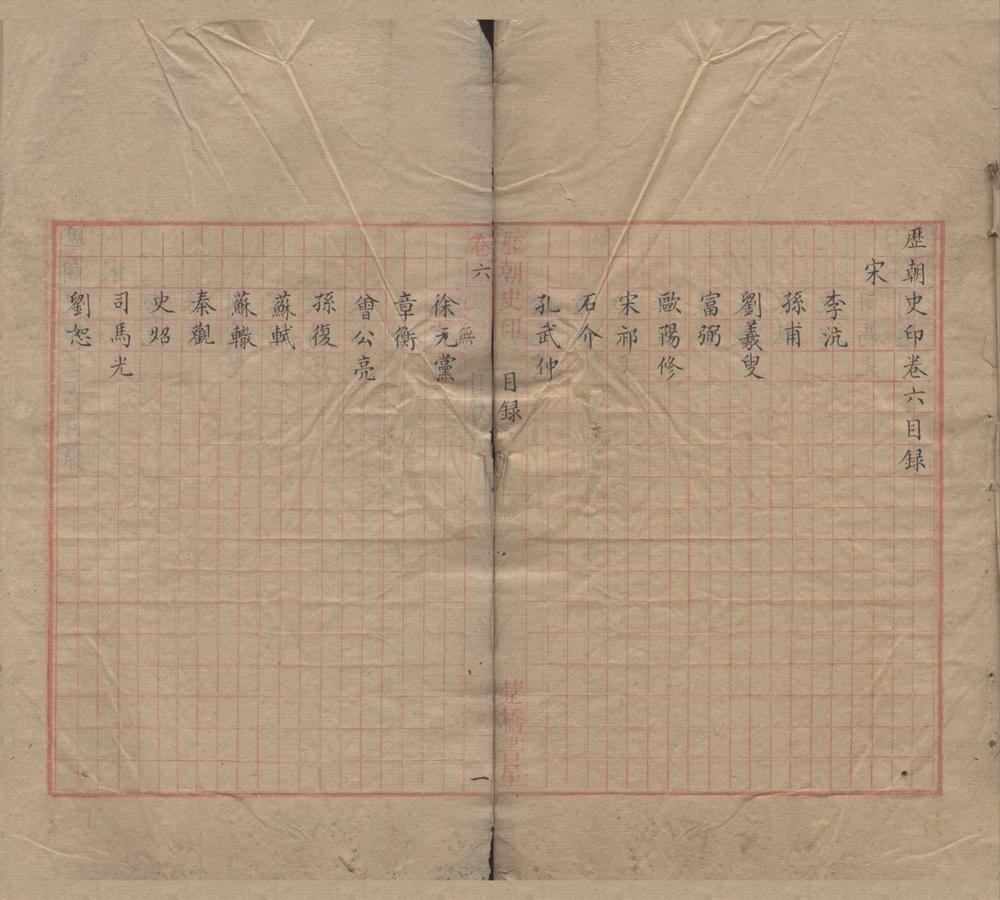 歷朝史印卷六目録
宋
李沆
孫甫
劉羲叟
富弼
歐陽修
宋祁
石介
孔武仲
歷朝史印
目録
楚橋書屋
卷六
一
徐无黨
無
章衡
曾公亮
孫復
蘇軾
蘇轍
秦觀
史炤
司馬光
劉恕